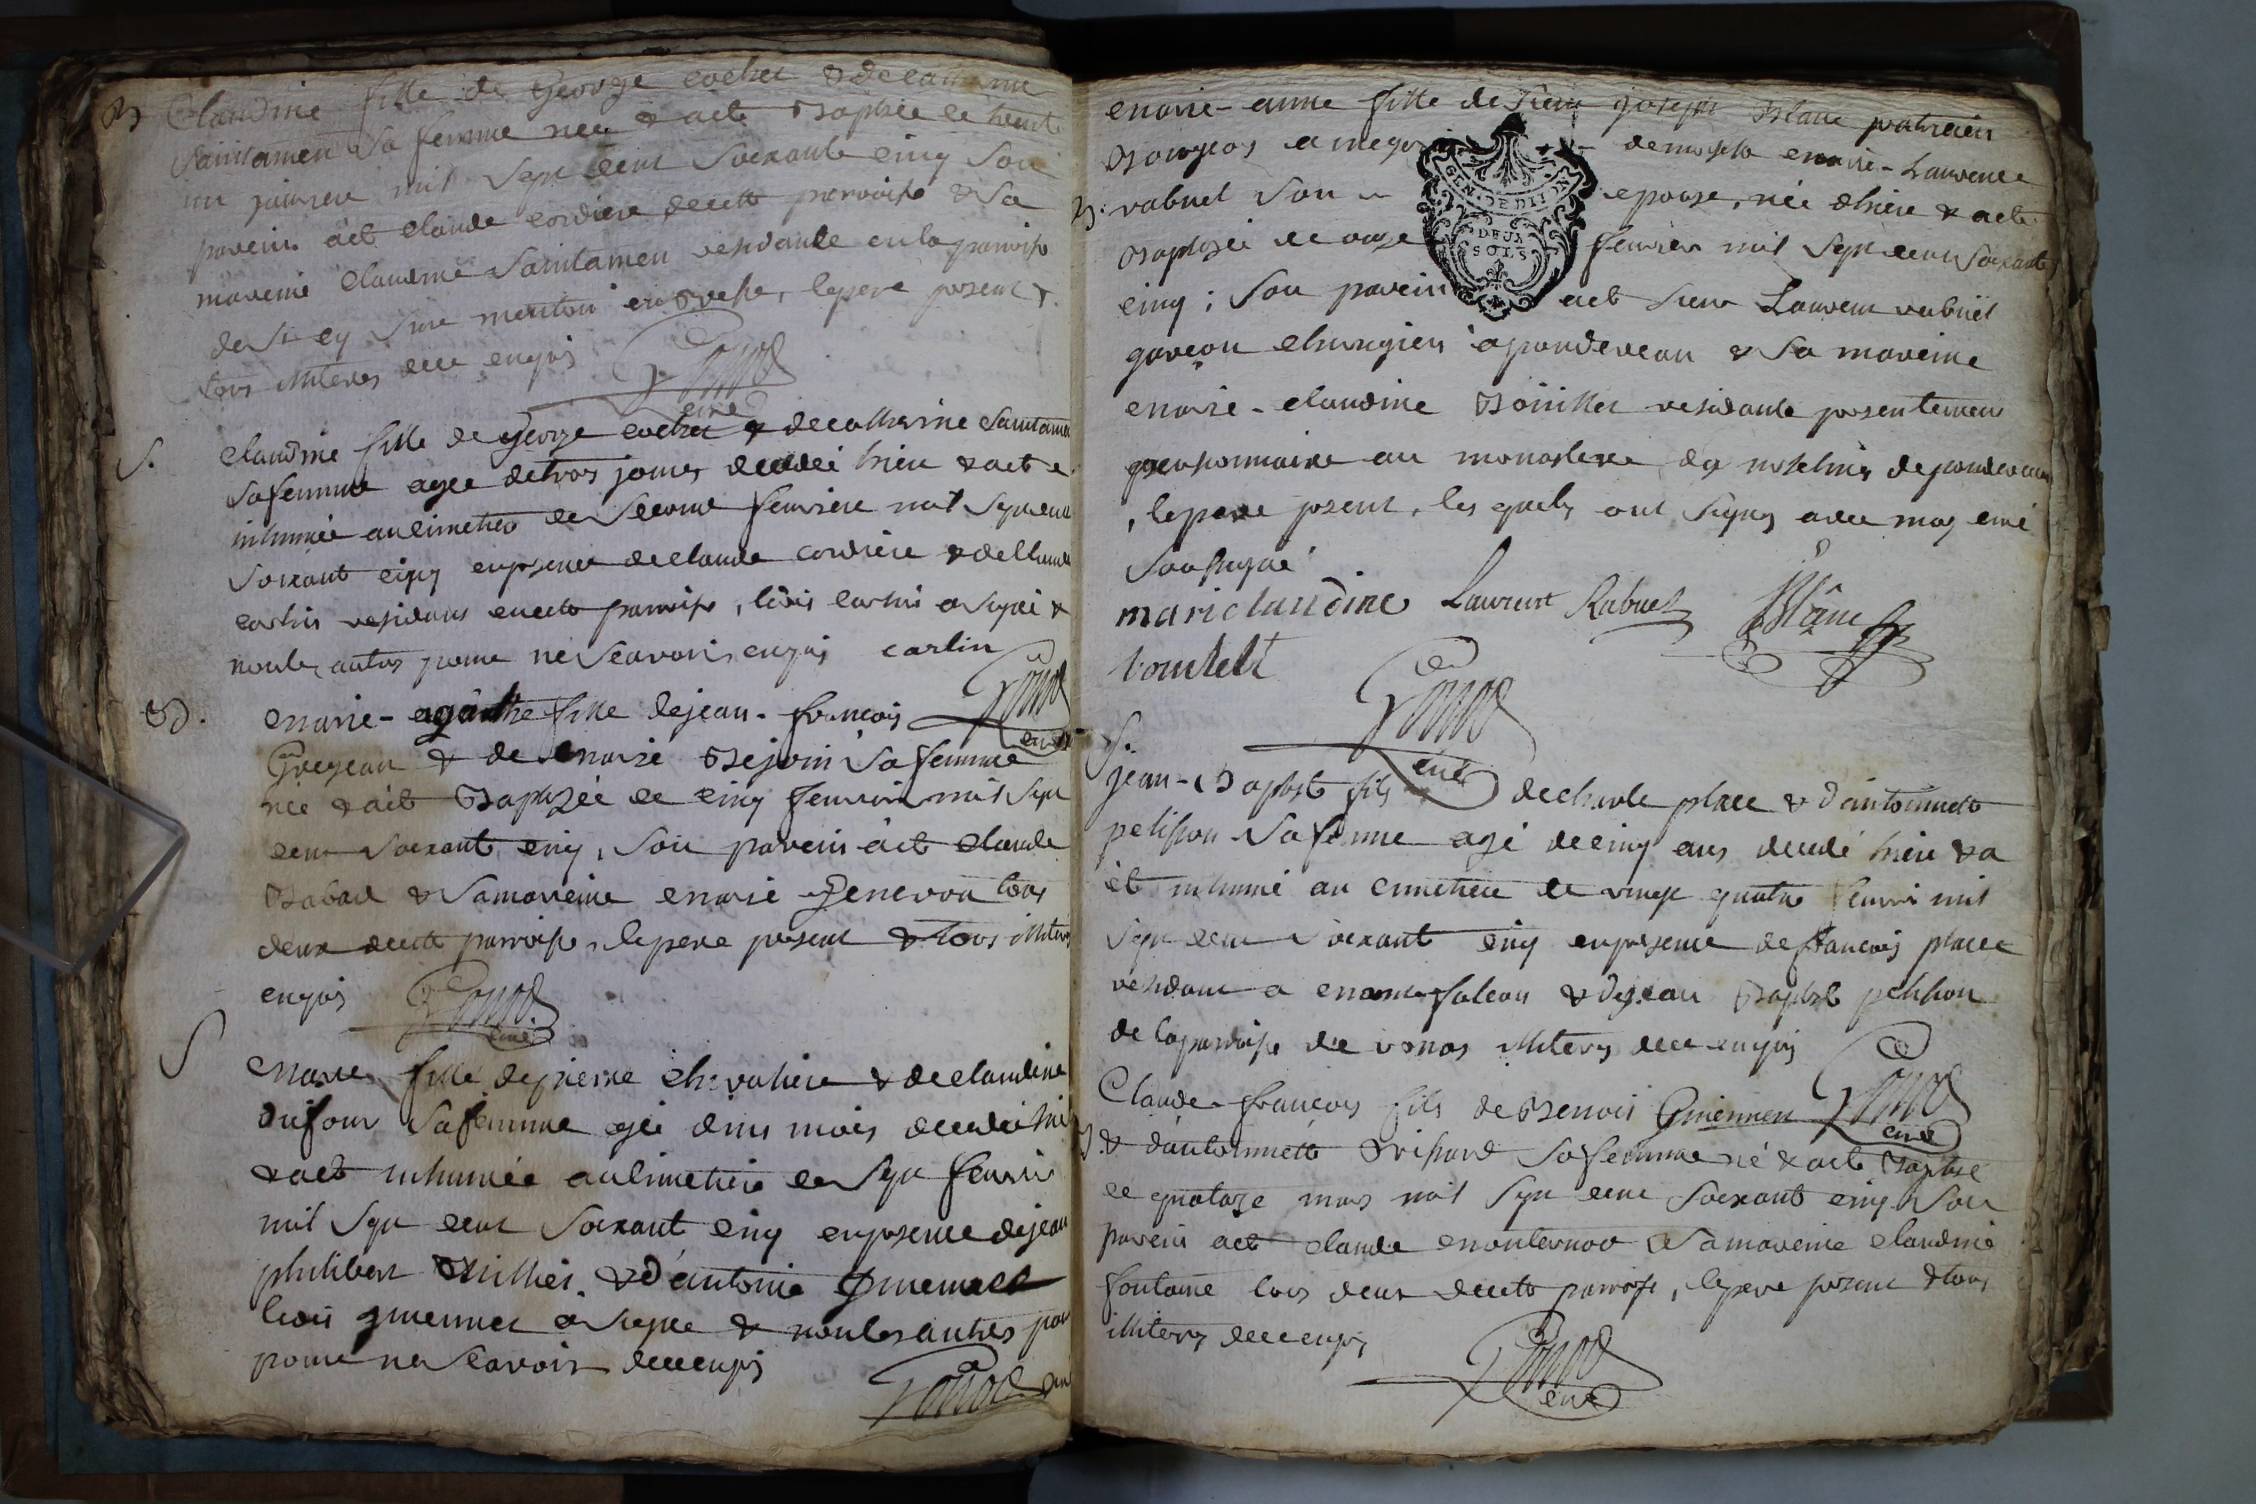 B Claudine fille de George cochet & de catherine
Saintamen sa femme née & a eté Baptisée le trente
un janvier mil sept cent soixante cinq son
parein a eté claude cordiere de cette parroisse & sa
mareine claudine Saintamen residante en la parroisse
de St Cyr sur menton en Bresse, le pere present &
tous illiteres de ce enquis
curé
S. claudine fille de George cochet & de catherine Saintamen
sa femme agée de trois jours decedée hier & a eté
inhumée au cimetiere le second fevriere mil sept cent
soixant cinq en presence de claude cordiere & de
carlin residans en cette parroisse, ledit carlin a signé &
non les autres pour ne sçavoir, enquis carlin
curé
B. marie-agathe fille de jean-françois
Grezeau & de marie Bejoin sa femme
née & a eté Baptizée le cinq fevrier mil sept
cent soixant cinq, son parein a eté claude
Babad & sa mareine marie Genevou tous
deux de cette parroisse, le pere present & tous illiteres
enquis
curé
S marie fille de pierre chevaliere & de claudine
Dufour sa femme agée d'un mois decedée hier
& a eté inhumée au cimetiere le sept fevrier
mil sept cent soixant cinq en presence de jean
philibert & d'antoine
ledit a signé & non les autres
pour ne sçavoir de ce enquis
curé
marie-anne fille de sieur joseph Blanc praticien
Bourgeois a & demoiselle marie-Laurence
B. rabuel son epouse, née d'hier & a eté
Baptizée le onze fevrier mil sept cent soixante
GEN. DE DIJON
DEUX
SOLS
cinq; son parein a eté sieur Laurent rabuel
garçon chirurgien a pondeveau & sa mareine
marie-claudine Boüillet residante presentement
pensionnaire au monastere des urselines de pondeveau
, le pere present, les quels ont signés avec moy curé
soussigné
marie claudine Laurent Rabuel Blanc
boulelt
curé
S. jean-Baptiste fils de charle place & d'antoinette
pelisson sa femme agé de cinq ans decedé hier & a
eté inhumé au cimetiere le vingt quatre fevrier mil
sept cent soixant cinq en presence de francois place
residant a & de jean Baptiste pelisson
de la parroisse de vonas illiteres de ce enquis
Claude-françois fils de Benoit Guiennen
curé
B. & d'antoinette Brissard sa femme né & a eté Baptisé
le quatorze mars mil sept cent soixant cinq son
parein a eté claude monternot & sa mareine claudine
fontaine tous deux de cette parroisse, le pere present & tous
illiteres de ce enquis
curé